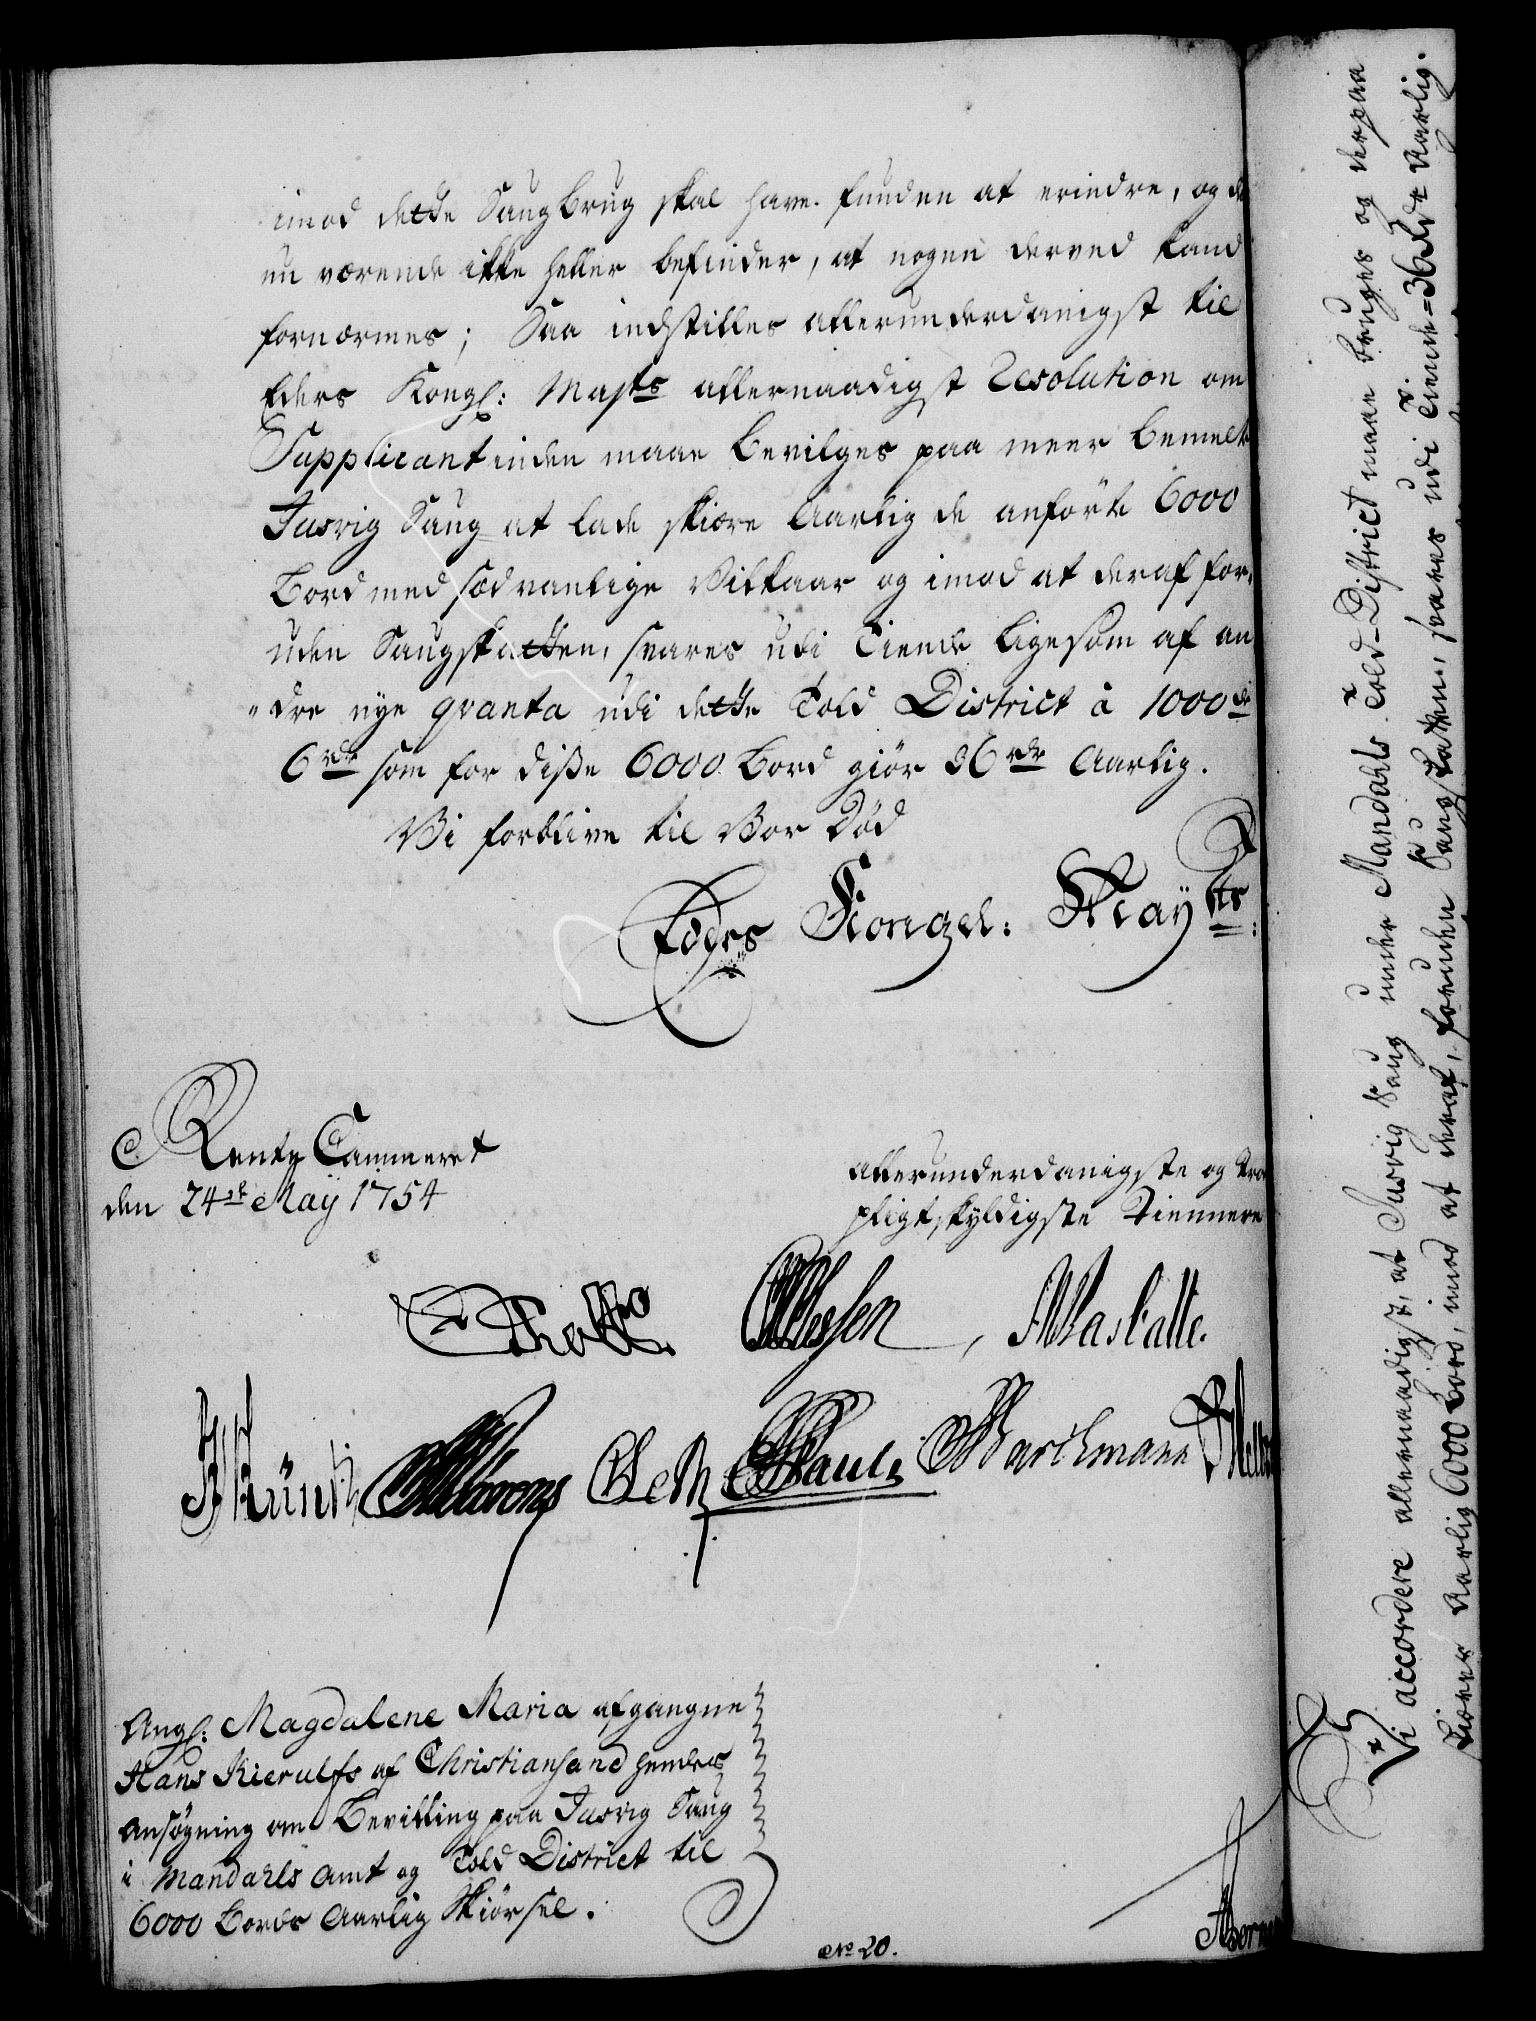 imod dette Saugbrug skal have funden at erindre, og de
nu værende ikke heller befinder, at nogen derved kand
fornærmes; Saa indstilles allerunderdanigst til
Eders Kongl: Mayts allernaadigst Resolution om
Supplicantinden maae bevilges paa meer bemelte
Jusvig Saug at lade skiære Aarlig de anførte 6000
Bord med sædvanlige Vilkaar og imod at deraf for,
uden Saugskatten, svares udi Tiende ligesom af an
"dre nye qvanta udi dette Told District à 1000de
6rdr som for diße 6000 Bord giør 36rdr Aarlig.
Vi forblive til Vor Død
Eders Kongel: Mayts:
Rente Cammeret
den 24de May 1754
allerunderdanigste og troe
pligtskyldigste Tiennere
Holst
Wessen, Wasballe.
Barchmann
Angl: Magdalene Maria afgangne
Hans Kierulfs af Christiansand hendes
Ansøgning om Bevilling paa Jusvig Saug
i Mandahls Amt og Told District til
6000 Bords Aarlig Skiørsel.
No 20.
Vi accordere allernaadigst, at Jusvig Saug under Mandahls Told-District maae bruges og derpaa
skiæres Aarlig 6000 Bord, imod at deraf, foruden Saugskatten, svares udi Tiende = 36 Rdr Aarlig.